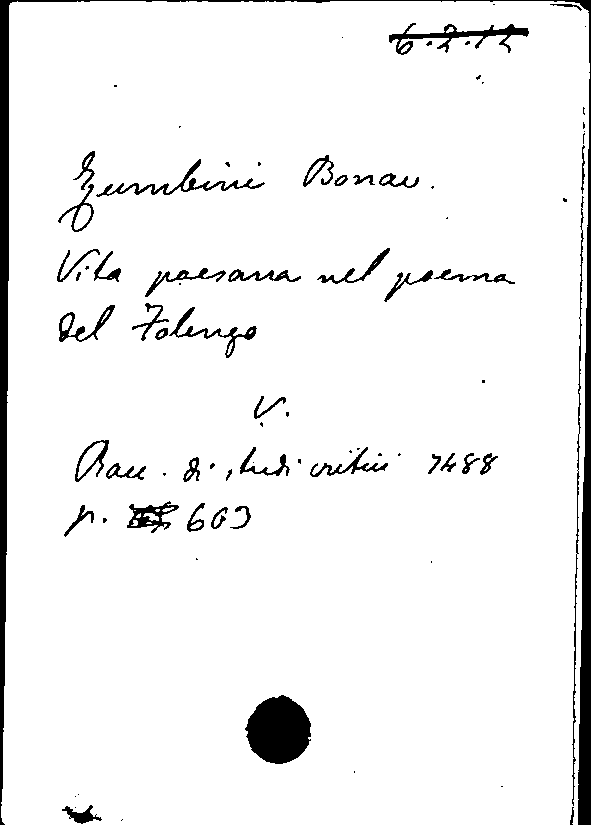 6.2.12
Zumbini Bonav.
Vita paesana nel poema
del Folengo
V.
Racc. di studi critici 7488
p. 603